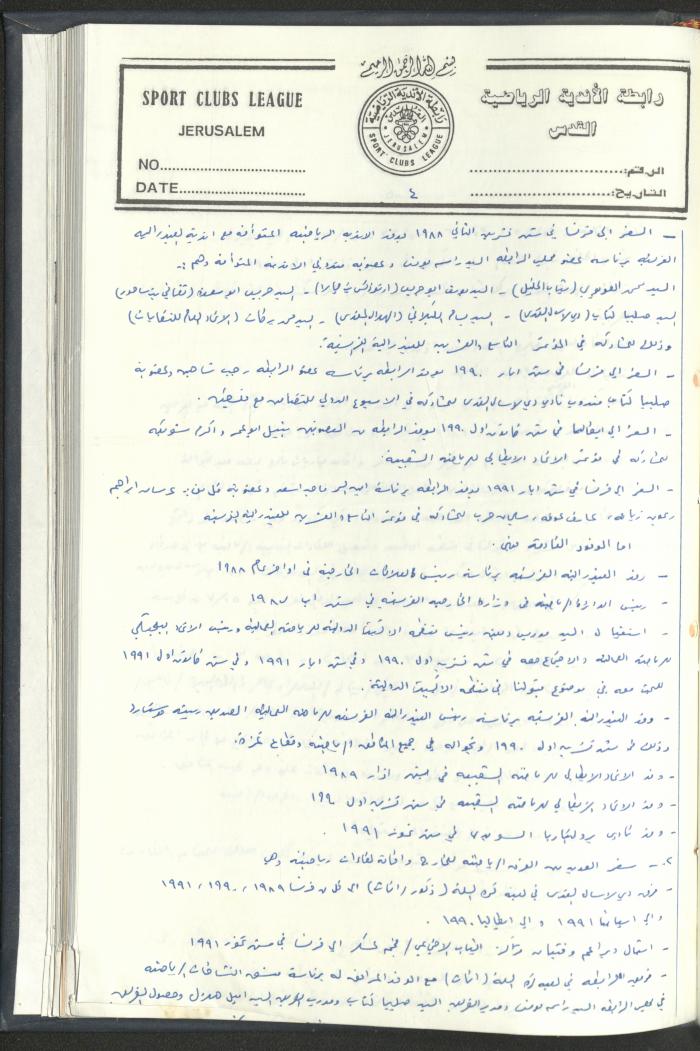 بسم الله الرحمن الرحيم
SPORT CLUBS LEAGUE
JERUSALEM
NO
DATE
رابطة الأندية الرياضية
القدس
الرقم:
التاريخ:
رابطة الأندية الرياضية
القدس
JERUSALEM
SPORT CLUBS LEAGUE
٤
- السفر الى فرنسا في شهر تشرين الثاني ١٩٨٨ لوفد الاندية الرياضية المتوأمة مع اندية الفيدرالية
الفرنسية برئاسة عضو الرابطة السيد راسم يونس وعضوية مندوبي الاندية المتوأمة وهم :-
السيد (شباب الخليل) - السيد يوسف - السيد جريس (ثقافي بيت ساحور)
السيد صليبا كتاب (دي لاسال القدس) - السيد (الهلال المقدسي) - السيد محمد بركات (الاتحاد العام للنقابات)
وذلك للمشاركة في المؤتمر التاسع والعشرين للفيدرالية الفرنسية.
- السفر الى فرنسا في شهر ايار ١٩٩٠ لوفد الرابطة برئاسة عضو الرابطة رجب شاهين وعضوية
صليبا كتاب مندوب نادي دي لاسال القدس للمشاركة في الاسبوع الدولي للتضامن مع فلسطين.
- السفر الى ايطاليا في شهر كانون اول ١٩٩٠ لوفد الرابطة من نبيل واكرم
للمشاركة في مؤتمر الاتحاد الايطالي للرياضة الشعبية.
- السفر الى فرنسا في شهر ايار ١٩٩١ لوفد الرابطة برئاسة امين السر اسعد وعضوية كل من ابراهيم
عارف عوفه وسليمان حرب للمشاركة في مؤتمر التاسع والعشرين للفيدرالية الفرنسية
اما الوفود القادمة فهي:
- وفد الفيدرالية الفرنسية برئاسة رئيس العلاقات الخارجية في اواخر عام ١٩٨٨
- رئيس الدائرة الرياضية في وزارة الخارجية الفرنسية في شهر اب ١٩٨٧
- استقبال السيد رئيس منظمة الدولية للرياضة العمالية ورئيس الاتحاد البلجيكي
للرياضة العمالية والاجتماع معه في شهر تشرين اول ١٩٩٠ وفي شهر ايار ١٩٩١ وفي شهر كانون اول ١٩٩١
للبحث معه في موضوع قبولنا في منظمة الدولية.
- وفد الفيدرالية الفرنسية برئاسة رئيس الفيدرالية الفرنسية للرياضة العمالية
وذلك في شهر تشرين اول ١٩٩٠ وتجواله في جميع المناطق الرياضية وقطاع غزة.
- وفد الاتحاد الايطالي للرياضة الشعبية في شهر اذار ١٩٨٩
- وفد الاتحاد الايطالي للرياضة الشعبية في شهر تشرين اول ١٩٩٠
- وفد نادي السويدي في شهر تموز ١٩٩١.
٢- سفر العديد من الفرق الرياضية للخارج واقامة لقاءات رياضية وهي
- فريق دي لاسال القدس في لعبة كرة السلة (ذكور/اناث) الى كل من فرنسا ١٩٨٩، ١٩٩٠، ١٩٩١
والى اسبانيا ١٩٩١ والى ايطاليا ١٩٩٠.
- مركز الشباب الاجتماعي/مخيم عسكر الى فرنسا في شهر تموز ١٩٩١
- فريق الرابطة في لعبة كرة السلة (اناث) مع الوفد المرافق له برئاسة منسق النشاطات الرياضية
في مجلس الرابطة السيد راسم يونس ومدير الفريق السيد صليبا كتاب ومدرب الفريق السيد اميل هلال